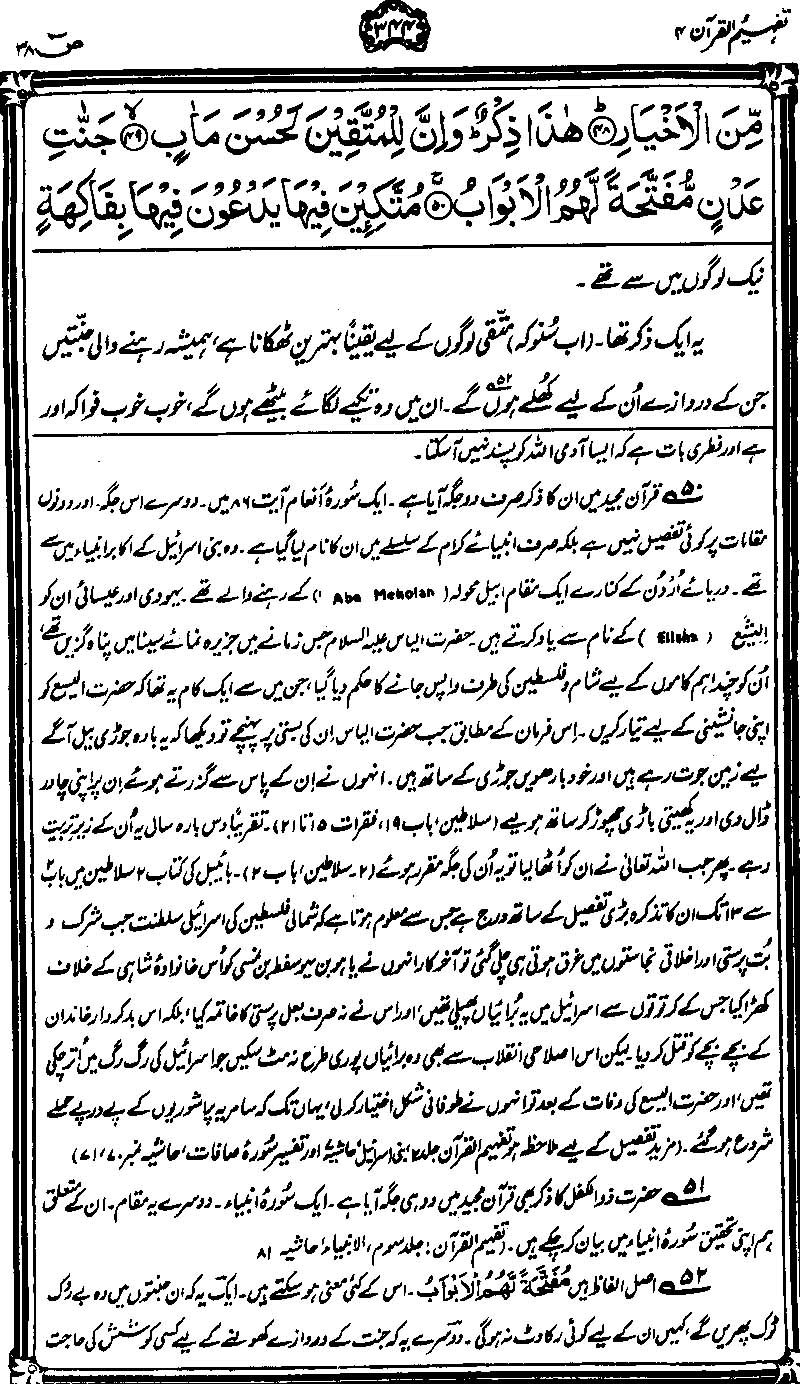 تفہیم القرآن ۴
۳۴۴
ص ۳۸
مِّنَ الْاَخْیَارِ ﴿۴۸﴾ هٰذَا ذِكْرٌ ؕ وَاِنَّ لِلْمُتَّقِیْنَ لَحُسْنَ مَاٰبٍ ﴿۴۹﴾ جَنّٰتِ
عَدْنٍ مُّفَتَّحَةً لَّهُمُ الْاَبْوَابُ ﴿۵۰﴾ مُتَّكِـِٕیْنَ فِیْهَا یَدْعُوْنَ فِیْهَا بِفَاكِهَةٍ
نیک لوگوں میں سے تھے۔
یہ ایک ذکر تھا۔ (اب سُنو کہ) متّقی لوگوں کے لیے یقیناً بہترین ٹھکانا ہے، ہمیشہ رہنے والی جنّتیں
جن کے دروازے اُن کے لیے کُھلے ہوں گے۔۵۲ ان میں وہ تکیے لگائے بیٹھے ہوں گے، خوب خوب فواکہ اور
ہے اور نظری بات ہے کہ ایسا آدمی اللہ کو پسند نہیں آسکتا۔
۵۰ قرآن مجید میں ان کا ذکر صرف دو جگہ آیا ہے۔ ایک سُورۂ اَنعام آیت ۸۶ میں۔ دوسرے اس جگہ۔ اور دونوں
مقامات پر کوئی تفصیل نہیں ہے بلکہ صرف انبیائے کرام کے سلسلے میں ان کا نام لیا گیا ہے۔ وہ بنی اسرائیل کے اکابر انبیاء میں سے
تھے۔ دریائے اُرْدُن کے کنارے ایک مقام ابیل محولہ (Abe Meholah) کے رہنے والے تھے۔ یہودی اور عیسائی ان کو
اِلِیشَع (Elisha) کے نام سے یاد کرتے ہیں۔ حضرت الیاس علیہ السلام جس زمانے میں جزیرہ نمائے سینا میں پناہ گزیں تھے،
اُن کو چند اہم کاموں کے لیے شام و فلسطین کی طرف واپس جانے کا حکم دیا گیا، جن میں سے ایک کام یہ تھا کہ حضرت الیسع کو
اپنی جانشینی کے لیے تیار کریں۔ اس فرمان کے مطابق جب حضرت الیاس اِن کی بستی پر پہنچے تو دیکھا کہ یہ بارہ جوڑی بیل آگے
لیے زمین جوت رہے ہیں اور خود بارھویں جوڑی کے ساتھ ہیں۔ انہوں نے اِن کے پاس سے گزرتے ہوئے اِن پر اپنی چادر
ڈال دی اور یہ کھیتی باڑی چھوڑ کر ساتھ ہو لیے (سلاطین، باب ۱۹، فقرات ۱۵ تا ۲۱)۔ تقریباً دس بارہ سال یہ اُن کے زیر تربیت
رہے۔ پھر جب اللہ تعالیٰ نے ان کو اُٹھا لیا تو یہ اُن کی جگہ مقرر ہوئے (۲۔سلاطین، باب ۲)۔ بائیبل کی کتاب ۲ سلاطین میں باب ۲
سے ۱۳ تک ان کا تذکرہ بڑی تفصیل کے ساتھ درج ہے جس سے معلوم ہوتا ہے کہ شمالی فلسطین کی اسرائیلی سلطنت جب شرک و
بُت پرستی اور اخلاقی نجاستوں میں غرق ہوتی ہی چلی گئی تو آخر کار انہوں نے یاہو بن یہوسفط بن نمسی کو اُس خانوادۂ شاہی کے خلاف
کھڑا کیا جس کے کرتوتوں سے اسرائیل میں یہ بُرائیاں پھیلی تھیں، اور اس نے نہ صرف بعل پرستی کا خاتمہ کیا، بلکہ اس بد کردار خاندان
کے بچے بچے کو قتل کر دیا۔ لیکن اس اصلاحی انقلاب سے بھی وہ برائیاں پوری طرح نہ مٹ سکیں جو اسرائیل کی رگ رگ میں اُتر چکی
تھیں، اور حضرت الیسع کی وفات کے بعد تو انہوں نے طوفانی شکل اختیار کر لی، یہاں تک کہ سامریہ پر اشوریوں کے پے در پے حملے
شروع ہو گئے۔ (مزید تفصیل کے لیے ملاحظہ ہو تفہیم القرآن جلد ۲، بنی اسرائیل، حاشیہ ۷ اور تفسیر سُورۂ صافات، حاشیہ نمبر ۷۰، ۷۱)
۵۱ حضرت ذوالکفل کا ذکر بھی قرآن مجید میں دو ہی جگہ آیا ہے۔ ایک سُورۂ انبیاء۔ دوسرے یہ مقام۔ ان کے متعلق
ہم اپنی تحقیق سُورۂ انبیاء میں بیان کر چکے ہیں۔ (تفہیم القرآن: جلد سوم، الانبیاء، حاشیہ ۸۱
۵۲ اصل الفاظ ہیں مُفَتَّحَةً لَّهُمُ الْاَبْوَابُ۔ اس کے کئی معنی ہو سکتے ہیں۔ ایک یہ کہ ان جنتوں میں وہ بے روک
ٹوک پھریں گے، کہیں ان کے لیے کوئی رکاوٹ نہ ہوگی۔ دوسرے یہ کہ جنت کے دروازے کھولنے کے لیے کسی کوشش کی حاجت